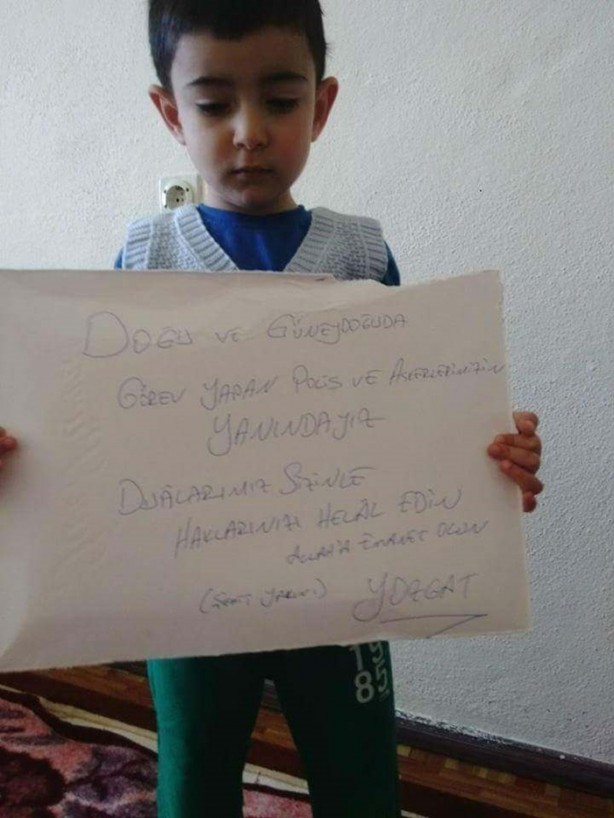 DOĞU VE GÜNEYDOĞUDA
GÖREV YAPAN POLİS VE ASKERLERİMİZİN
YANINDAYIZ
DUÂLARIMIZ SİZİNLE
HAKLARINIZI HELÂL EDİN
ALLAH'A EMANET OLUN
YOZGAT
18